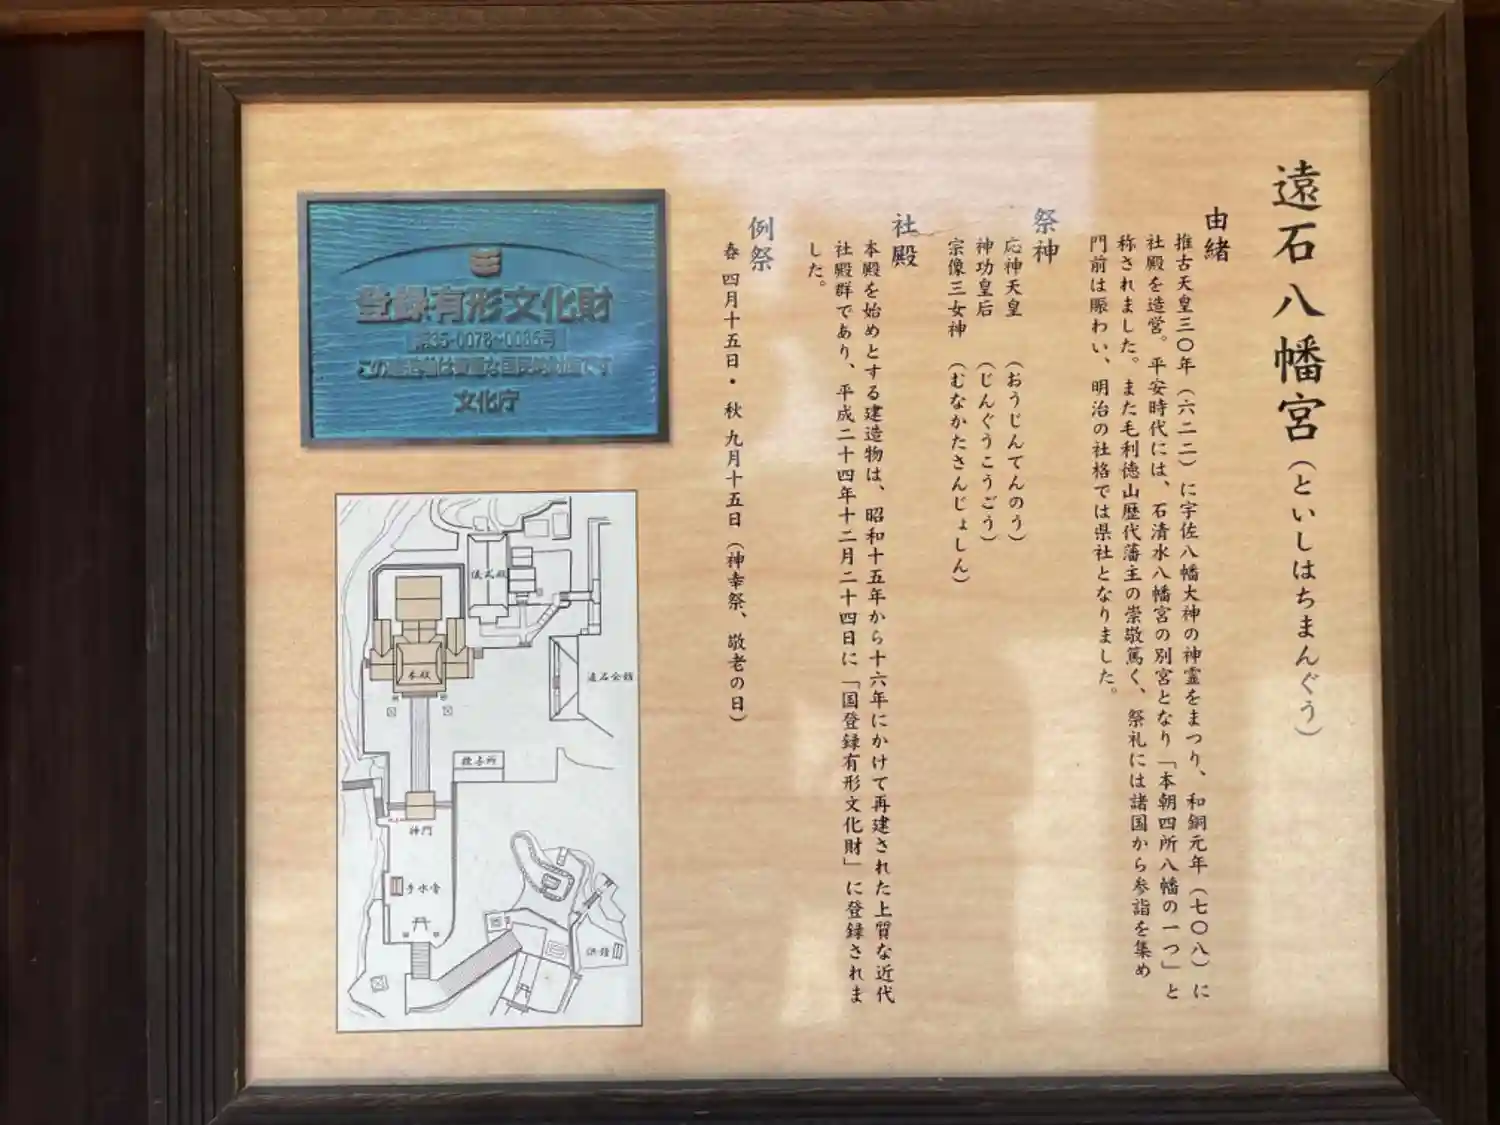 遠石八幡宮（といしはちまんぐう）
由緒
推古天皇三〇年（六二二）に宇佐八幡大神の神霊をまつり、和銅元年（七〇八）に
社殿を造営。平安時代には、石清水八幡宮の別宮となり「本朝四所八幡の一つ」と
称されました。また毛利徳山歴代藩主の崇敬篤く、祭礼には諸国から参詣を集め
門前は賑わい、明治の社格では県社となりました。
祭神
応神天皇　（おうじんてんのう）
神功皇后　（じんぐうこうごう）
宗像三女神　（むなかたさんじょしん）
社殿
本殿を始めとする建造物は、昭和十五年から十六年にかけて再建された上質な近代
社殿群であり、平成二十四年十二月二十四日に「国登録有形文化財」に登録されま
した。
例祭
春 四月十五日・秋 九月十五日（神幸祭、敬老の日）
登録有形文化財
第35-0078~0085号
この建造物は貴重な国民的財産です
文化庁
儀式殿
本殿
遠石会館
授与所
神門
手水舎
洪鐘